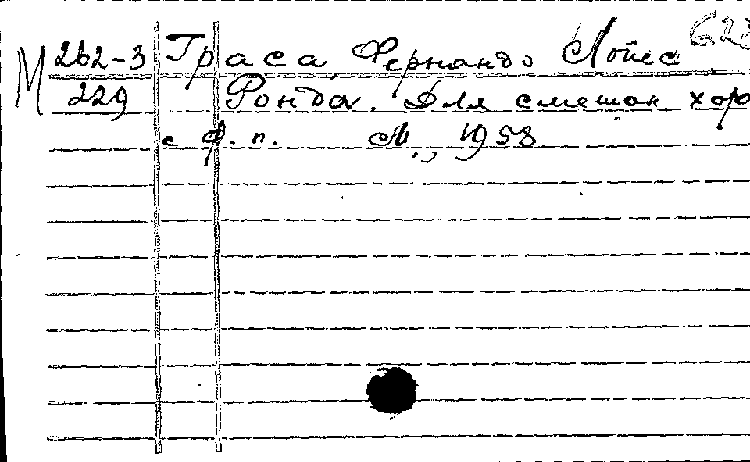 М 262-3 Граса, Фернандо Лопес
229 Ронда. Для смешан хор
с ф. п. М., 1958